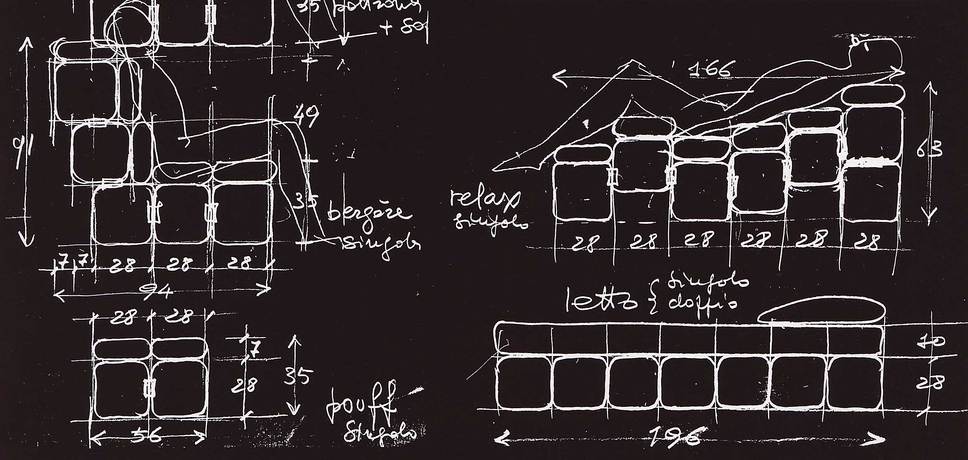 35 poltrona
+ So
91
49
35
bergère
singola
7 7 28 28 28
94
28 28
7
28
35
pouff
singolo
56
166
63
relax
singolo
28 28 28 28 28 28
letto { singolo
doppio
10
28
196